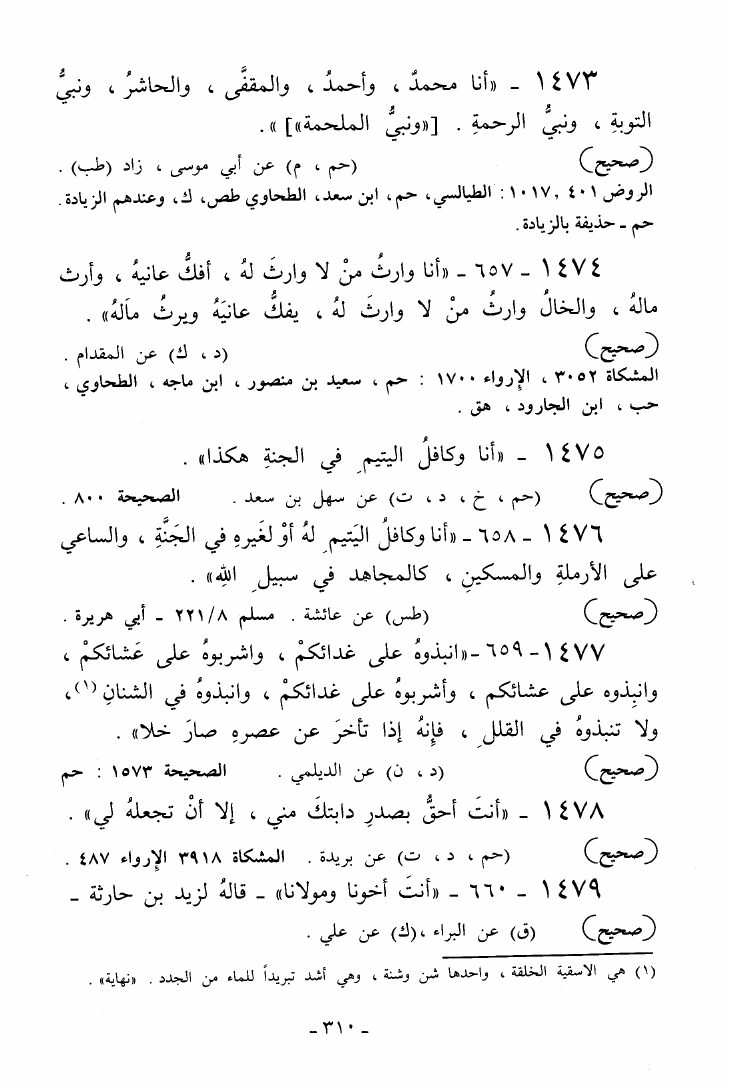 ١٤٧٣ - «أنا محمدٌ ، وأحمدُ ، والمقفَّى ، والحاشرُ ، ونبيُّ
التوبةِ ، ونبيُّ الرحمةِ . [«ونبيُّ الملحمة»] » .
(صحيح) (حم ، م) عن أبي موسى ، زاد (طب) .
الروض ٤٠١ ,١٠١٧ : الطيالسي، حم، ابن سعد، الطحاوي طص، ك، وعندهم الزيادة.
حم - حذيفة بالزيادة.
١٤٧٤ - ٦٥٧ - «أنا وارثُ منْ لا وارثَ لهُ ، أفكُّ عانيهُ ، وأرث
مالهُ ، والخالُ وارثُ منْ لا وارثَ لهُ ، يفكُّ عانيَهُ ويرثُ مآلهُ» .
(صحيح) (د ، ك) عن المقدام .
المشكاة ٣٠٥٢ ، الإرواء ١٧٠٠ : حم ، سعيد بن منصور ، ابن ماجه ، الطحاوي ،
حب ، ابن الجارود ، هق .
١٤٧٥ - «أنا وكافلُ اليتيمِ في الجنةِ هكذا» .
(صحيح) (حم ، خ ، د ، ت) عن سهل بن سعد . الصحيحة ٨٠٠ .
١٤٧٦ - ٦٥٨ - «أنا وكافلُ اليَتيمِ لهُ أوْ لغَيرهِ في الجَنَّةِ ، والساعي
على الأرملةِ والمسكينِ ، كالمجاهد في سبيلِ اللهِ» .
(صحيح) (طس) عن عائشة . مسلم ٢٢١/٨ - أبي هريرة .
١٤٧٧ - ٦٥٩ -«انبذوهُ على غدائكمْ ، واشربوهُ على عَشائكمْ ،
وانبِذوه على عشائكم ، وأشربوهُ على غدائكمْ ، وانبذوهُ في الشنانِ (١)،
ولا تنبذوهُ في القللِ ، فإنهُ إذا تأخرَ عن عصرهِ صارَ خلا» .
(صحيح) (د ، ن) عن الديلمي . الصحيحة ١٥٧٣ : حم
١٤٧٨ - «أنتَ أحقُّ بصدرِ دابتكَ مني ، إلا أنْ تجعلهُ لي» .
(صحيح) (حم ، د ، ت) عن بريدة . المشكاة ٣٩١٨ الإرواء ٤٨٧ .
١٤٧٩ - ٦٦٠ - «أنتَ أخونا ومولانا» - قالهُ لزيد بن حارثة -
(صحيح) (ق) عن البراء ،(ك) عن علي .
(١) هي الاسقية الخلقة ، واحدها شن وشنة ، وهي أشد تبريداً للماء من الجدد . «نهاية» .
- ٣١٠ -